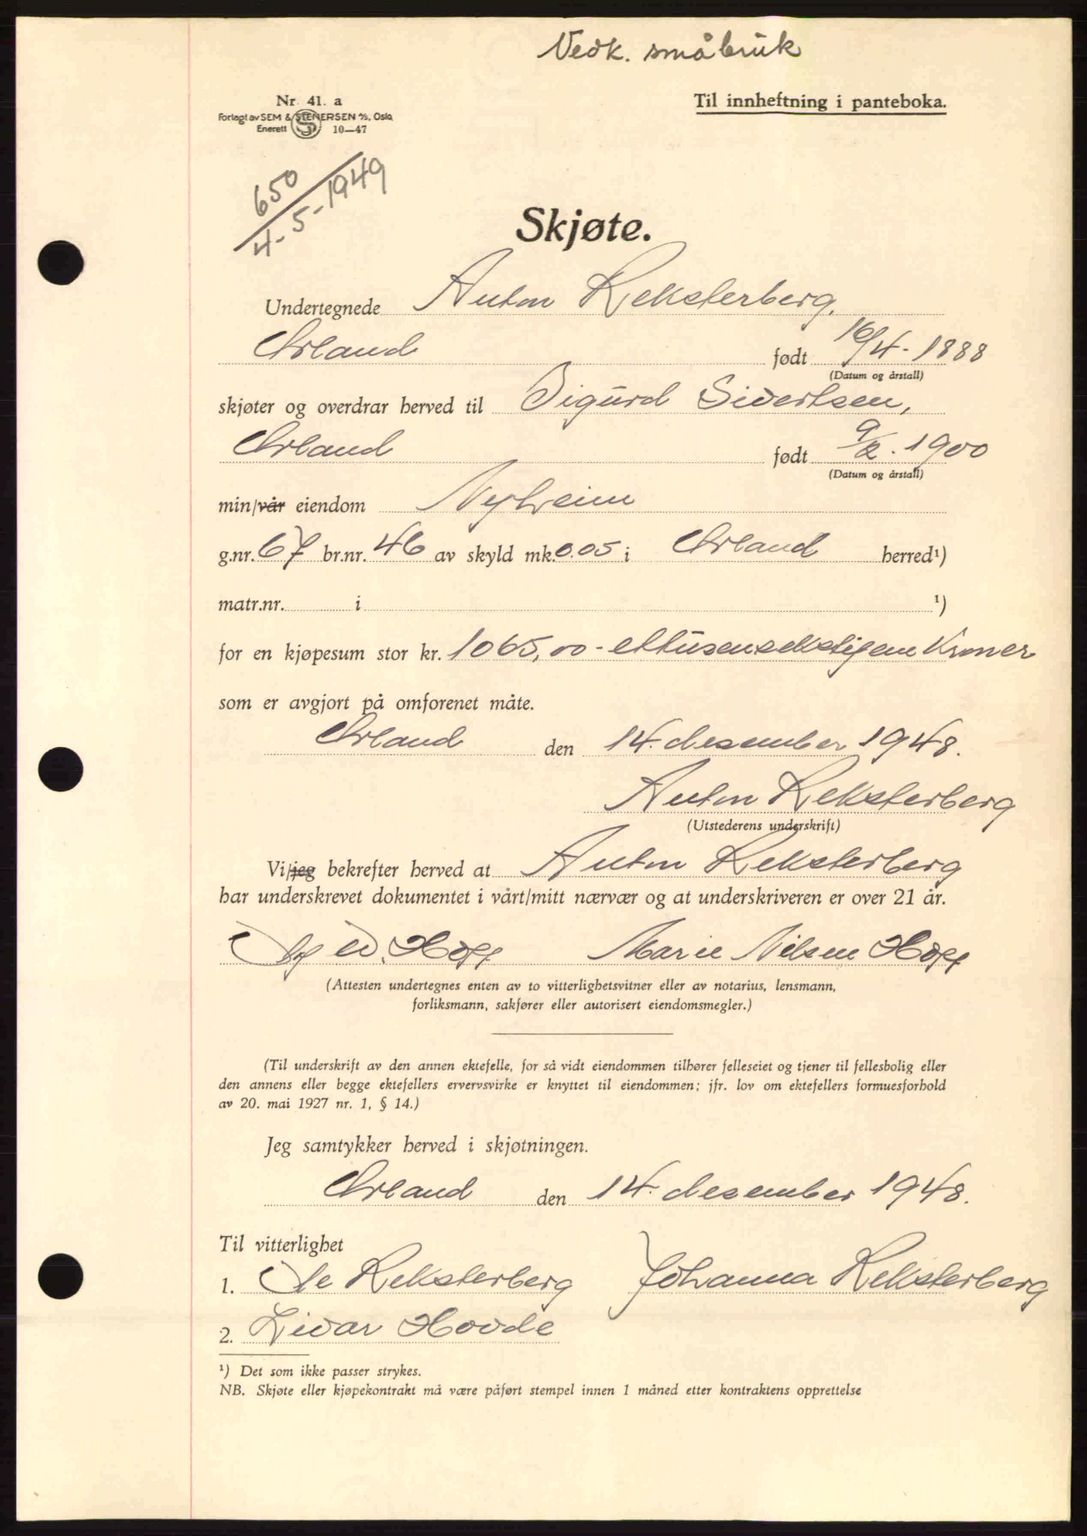 Vedk. småbruk
Nr. 41. a
Forlagt av SEM & STENERSEN A/S, Oslo
Enerett 10—47
Til innheftning i panteboka.
650
4-5-1949
Skjøte.
Undertegnede Anton Reksterberg,
Ørland født 16/4-1888
(Datum og årstall)
skjøter og overdrar herved til Sigurd Sivertsen,
Ørland født 9/2.1900
(Datum og årstall)
min/vår eiendom Nyheim
g.nr. 67 br.nr. 46 av skyld mk. 0.05 i Ørland herred¹)
matr.nr. i ¹)
for en kjøpesum stor kr. 1065,00 - ettusensekstifem Kroner
som er avgjort på omforenet måte.
Ørland den 14. desember 1948.
Anton Reksterberg
(Utstederens underskrift)
Vi/jeg bekrefter herved at Anton Reksterberg
har underskrevet dokumentet i vårt/mitt nærvær og at underskriveren er over 21 år.
Hopp Marie Nilsen Hopp
(Attesten undertegnes enten av to vitterlighetsvitner eller av notarius, lensmann,
forliksmann, sakfører eller autorisert eiendomsmegler.)
(Til underskrift av den annen ektefelle, for så vidt eiendommen tilhører felleseiet og tjener til fellesbolig eller
den annens eller begge ektefellers ervervsvirke er knyttet til eiendommen; jfr. lov om ektefellers formuesforhold
av 20. mai 1927 nr. 1, § 14.)
Jeg samtykker herved i skjøtningen.
Ørland den 14. desember 1948.
Til vitterlighet
1. Reksterberg Johanna Reksterberg
2. Hovde
¹) Det som ikke passer strykes.
NB. Skjøte eller kjøpekontrakt må være påført stempel innen 1 måned etter kontraktens opprettelse